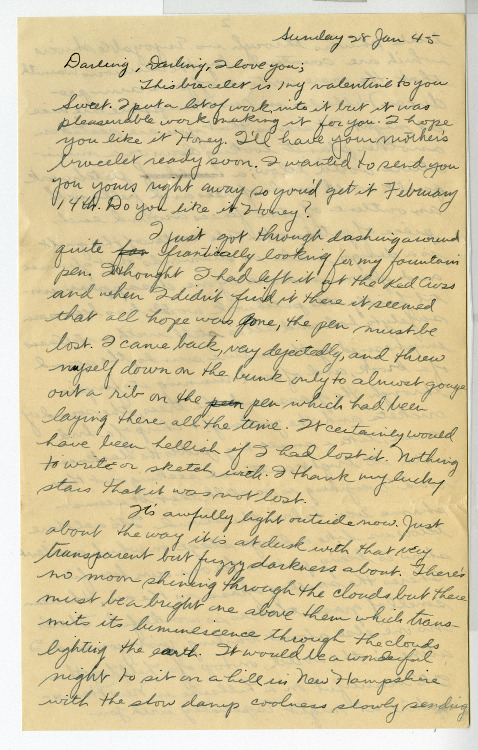 Sunday 28 Jan 45
Darling, Darling, I love you;
This bracelet is my valentine to you
Sweet. I put a lot of work into it but it was
pleasurable work making it for you. I hope
you like it Honey. I'll have your mother's
bracelet ready soon. I wanted to send you
you yours right away so you'd get it February
14th. Do you like it Honey?
I just got through dashing around
quite for frantically looking for my fountain
pen. I thought I had left it at the Red Cross
and when I didn't find it there it seemed
that all hope was gone, the pen must be
lost. I came back, very dejectedly, and threw
myself down on the bunk only to almost gouge
out a rib on the pen pen which had been
laying there all the time. It certainly would
have been hellish if I had lost it. Nothing
to write or sketch with. I thank my lucky
stars that it was not lost.
It's awfully light outside now. Just
about the way it is at dusk with that very
transparent but fuzzy darkness about. There's
no moon shining through the clouds but there
must be a bright one above them which trans-
mits its luminescence through the clouds
lighting the earth. It would be a wonderful
night to sit on a hill in New Hampshire
with the slow damp coolness slowly sending